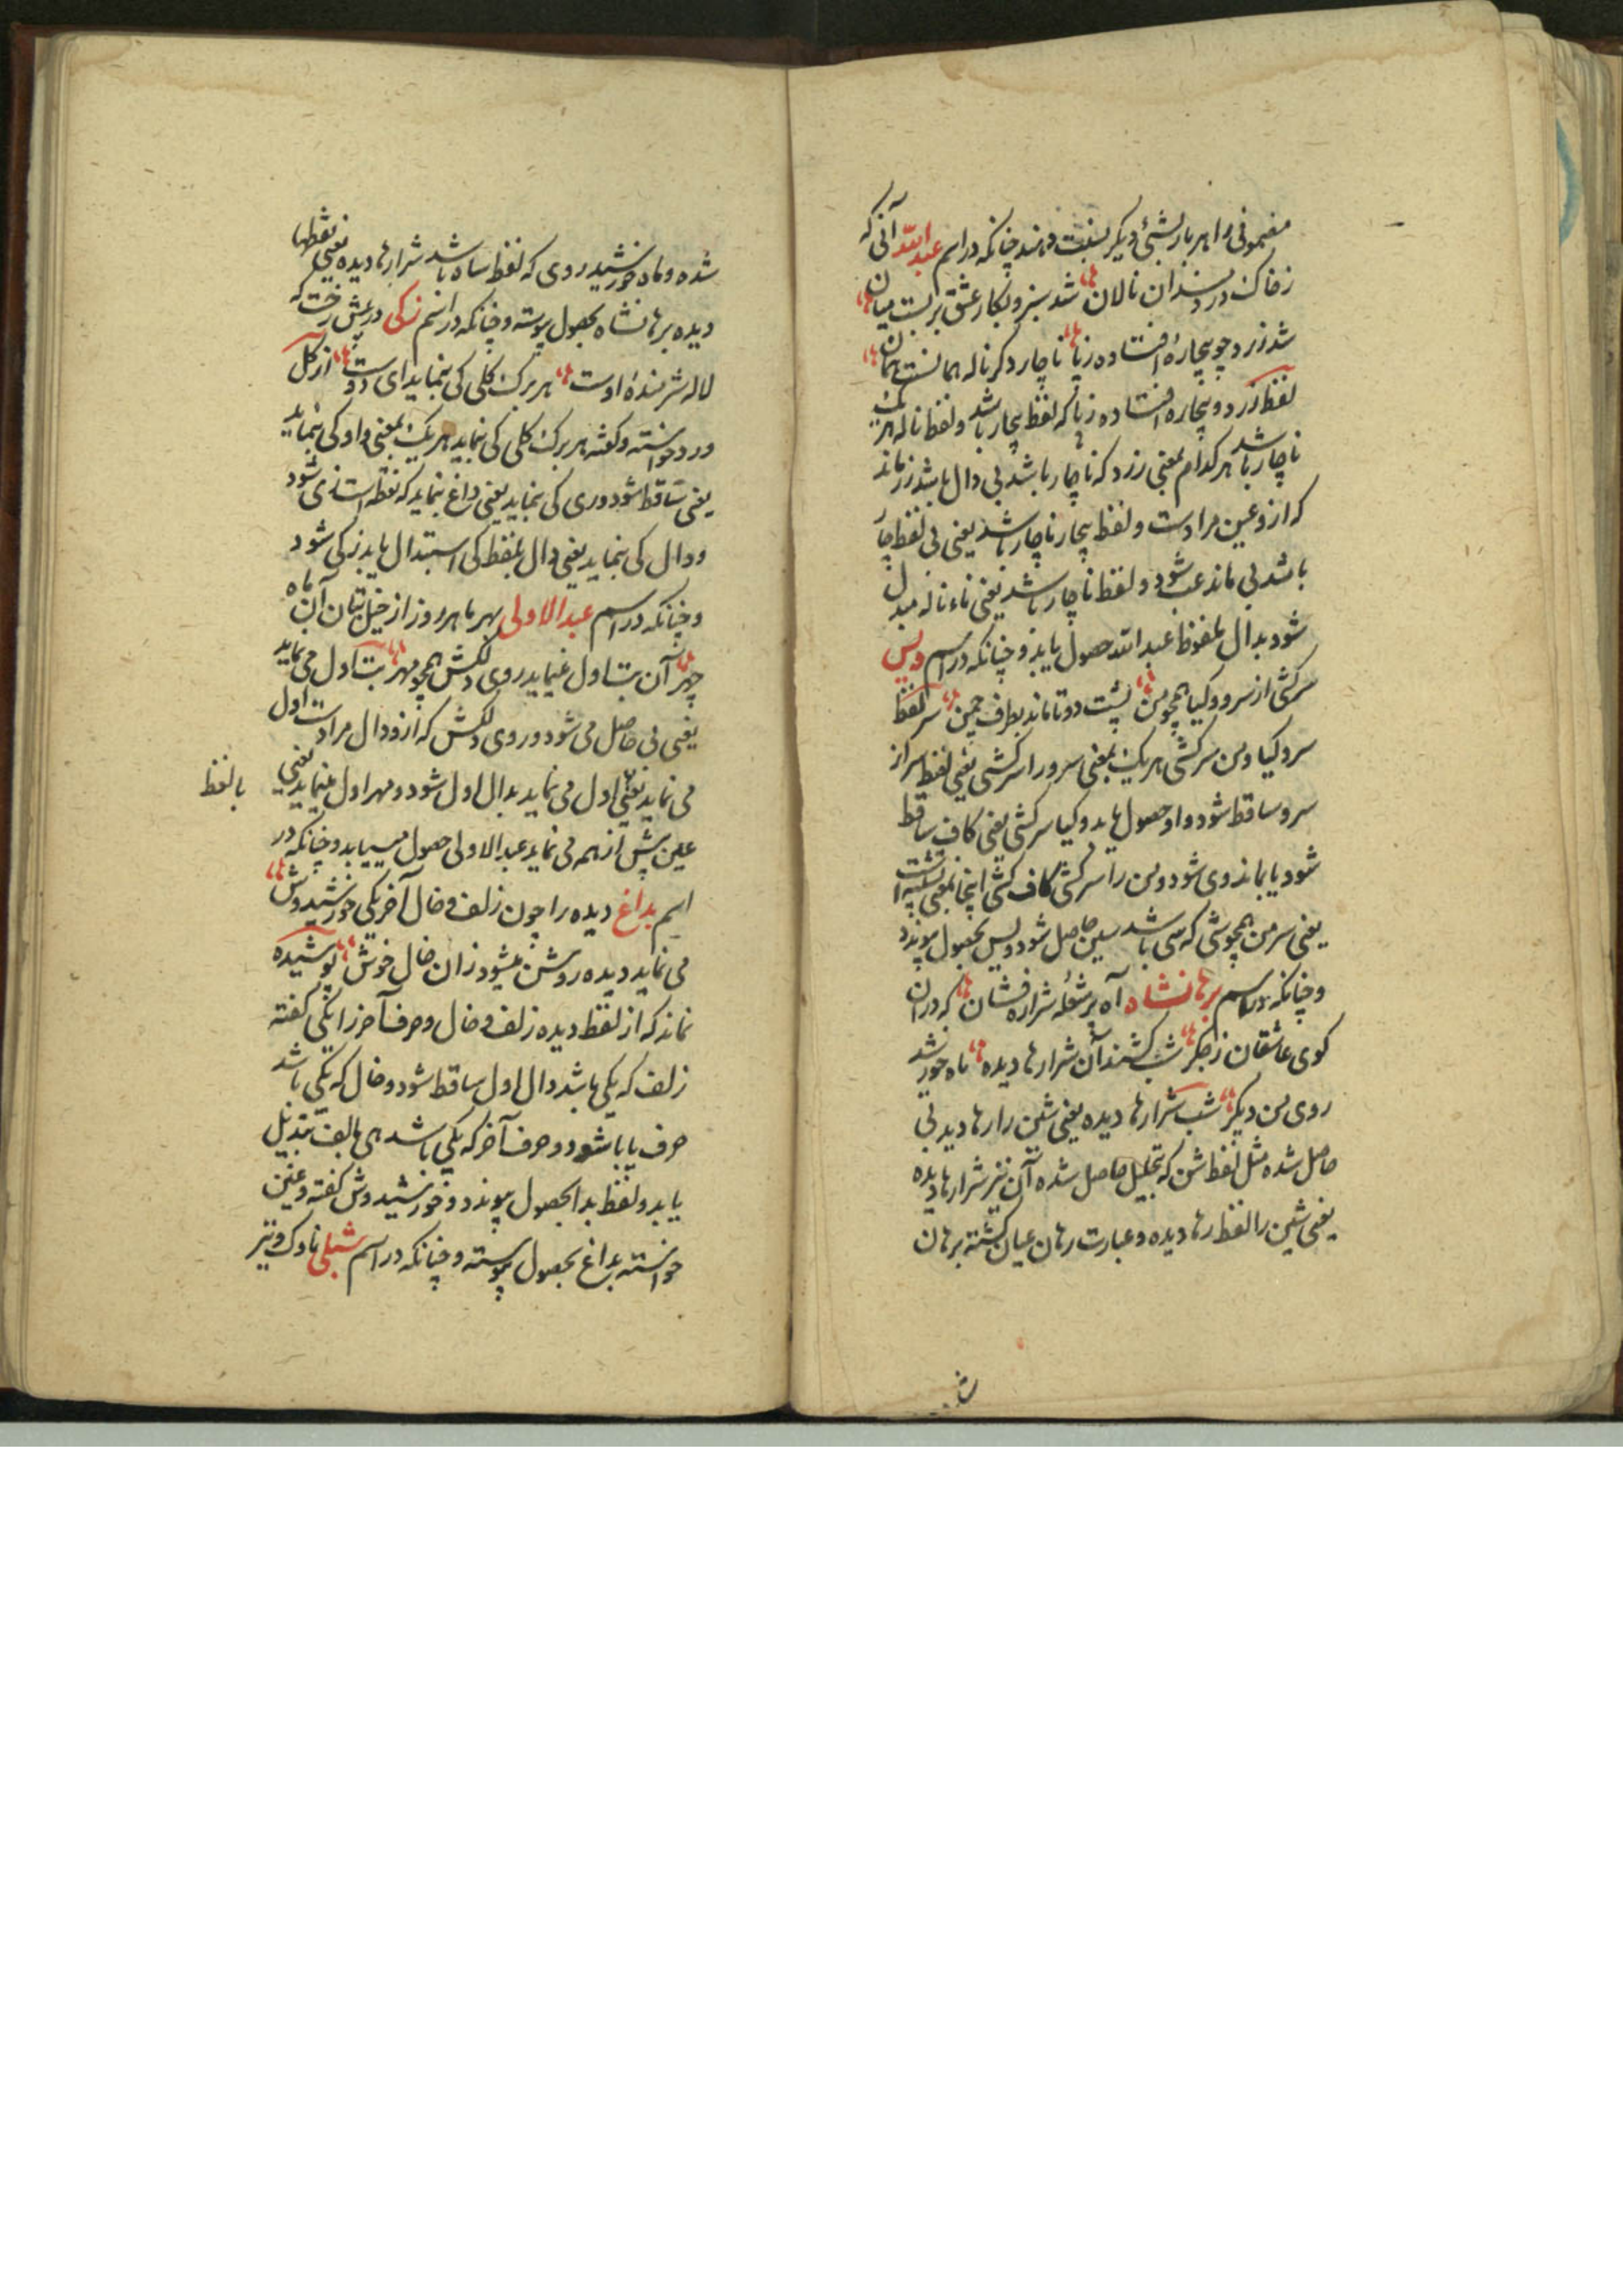 مضمونی را هر بار بشیٔ دیگر نسبت دهند چنانکه در اسم عبد الله آنی که
ز خاک درد مندان نالان شد سبز و بکار عشق بر بست میان
شد زرد چو بیچارهٔ افتاده ز پا ناچار دگر ناله همانست همان
لفظ زرد و بیچاره افتاده ز پا که لفظ بیچار باشد و لفظ ناله هر یک
ناچار باشد هر کدام بمعنی زرد که ناچار باشد بی دال باشد زر ماند
که ازو عین مرادست و لفظ بیچار ناچار باشد یعنی بی لفظ چار
باشد بی ماند عب شود و لفظ ناچار باشد یعنی ناء ناله مبدل
شود بدال ملفوظ عبد الله حصول یابد و چنانکه در اسم ویس
سرکشی از سرو و کیا همچو من پشت دو تا ماند بطرف چمن سر لفظ
سرو کیا و من سرکشی هر یک بمعنی سرو را سرکشی یعنی لفظ سر از
سرو ساقط شود واو حصول یابد و کیا سرکشی یعنی کاف ساقط
شود یا بماند وی شود و من را سرکشی کاف کشی اینجا بمعنی تشبیه است
یعنی سر من همچو شی که سی باشد سین حاصل شود و ویس بحصول پیوندد
و چنانکه در اسم برهانشاه آه پر شعله شراره فشان که در ان
کوی عاشقان ز جگر شب کشند آن شرارها دیده ماه خورشید
روی من دیگر شب شرارها دیده یعنی شین را رها دید بی
حاصل شده مثل لفظ شن که بتحلیل حاصل شده آن نیز شرارها دیده
یعنی شین را لفظ رها دیده و عبارت رهان عیان گشته برهان
شده و ماه خورشید روی که لفظ ساه باشد شرارها دیده یعنی نقطها
دیده برهانشاه بحصول پیوسته و چنانکه در اسم زکی در پیش رخت که
لاله شرمندهٔ اوست هر برک کلی کی بنماید ای دوست از کل
ورد خواسته و گفته هر برک کلی کی نماید هر یک بمعنی واو کی بنماید
یعنی ساقط شود و ری کی بنماید یعنی داغ بنماید که نقطه است زی شود
و دال کی بنماید یعنی دال بلفظ کی استبدال یابد زکی شود
و چنانکه در اسم عبد الاولی بهر ما هر روز از خیل بتان آن ماه
چهر آن بت اول نماید روی دلکش همچو مهر بت اول می نماید
یعنی بی حاصل می شود و روی دلکش که ازو دال مرادست اول
می نماید یعنی اول می نماید بدال اول شود و مهر اول نماید یعنی
بالفظ
عین پیش از همه می نماید عبد الاولی حصول مییابد و چنانکه در
اسم بداغ دیده را چون زلف و خال آخر یکی خورشیدوش
می نماید دیده روشن میشود زان خال خوش پوشیده
نماند که از لفظ دیده زلف و خال و حرف آخر را یکی گفته
زلف که یکی باشد دال اول ساقط شود و خال که یکی باشد
حرف یا با شود و حرف آخر که یکی باشد ها بالف تبدیل
یابد و لفظ بدا بحصول پیوندد و خورشیدوش گفته و عین
خواسته بداغ بحصول پیوسته و چنانکه در اسم شبلی ناوک و تیر